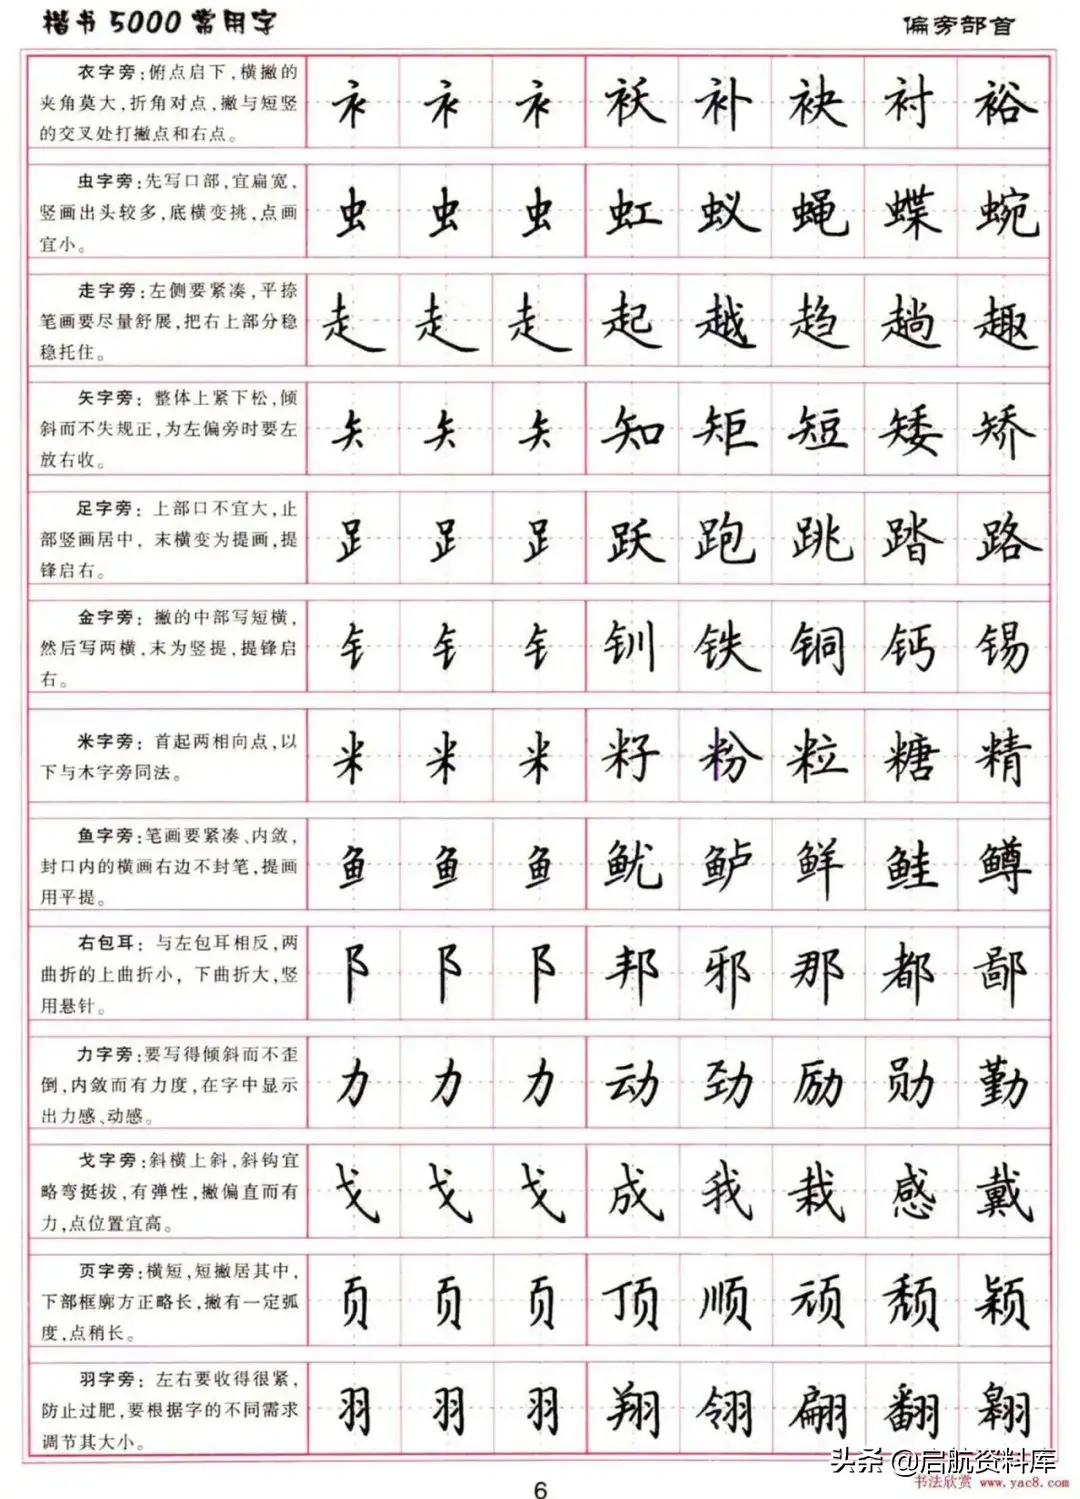 楷书5000常用字
偏旁部首
衣字旁：俯点启下，横撇的
夹角莫大，折角对点，撇与短竖
的交叉处打撇点和右点。
衤 衤 衤 袄 补 袂 衬 裕
虫字旁：先写口部，宜扁宽，
竖画出头较多，底横变挑，点画
宜小。
虫 虫 虫 虹 蚁 蝇 蝶 蜿
走字旁：左侧要紧凑，平捺
笔画要尽量舒展，把右上部分稳
稳托住。
走 走 走 起 越 趋 趟 趣
矢字旁：整体上紧下松，倾
斜而不失规正，为左偏旁时要左
放右收。
矢 矢 矢 知 矩 短 矮 矫
足字旁：上部口不宜大，止
部竖画居中，末横变为提画，提
锋启右。
𧾷 𧾷 𧾷 跃 跑 跳 踏 路
金字旁：撇的中部写短横，
然后写两横，末为竖提，提锋启
右。
钅 钅 钅 钏 铁 铜 钙 锡
米字旁：首起两相向点，以
下与木字旁同法。
米 米 米 籽 粉 粒 糖 精
鱼字旁：笔画要紧凑、内敛，
封口内的横画右边不封笔，提画
用平提。
鱼 鱼 鱼 鱿 鲈 鲜 鲑 鳟
右包耳：与左包耳相反，两
曲折的上曲折小，下曲折大，竖
用悬针。
阝 阝 阝 邦 邪 那 都 鄙
力字旁：要写得倾斜而不歪
倒，内敛而有力度，在字中显示
出力感、动感。
力 力 力 动 劲 励 勋 勤
戈字旁：斜横上斜，斜钩宜
略弯挺拔，有弹性，撇偏直而有
力，点位置宜高。
戈 戈 戈 成 我 栽 感 戴
页字旁：横短，短撇居其中，
下部框廓方正略长，撇有一定弧
度，点稍长。
页 页 页 顶 顺 顽 颓 颖
羽字旁：左右要收得很紧，
防止过肥，要根据字的不同需求
调节其大小。
羽 羽 羽 翔 翎 翩 翻 翱
头条 @启航资料库
书法欣赏 www.yac8.com
6